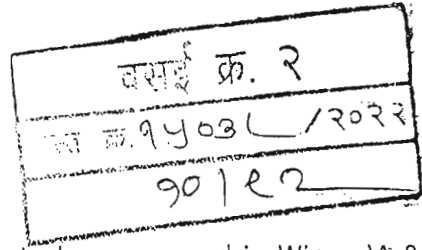 वसई क्र. २
दस्त क्र.१५०३८/२०२२
१०|९२